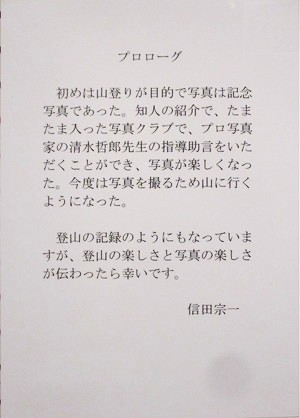 プロローグ
初めは山登りが目的で写真は記念
写真であった。知人の紹介で、たま
たま入った写真クラブで、プロ写真
家の清水哲郎先生の指導助言をいた
だくことができ、写真が楽しくなっ
た。今度は写真を撮るため山に行く
ようになった。
登山の記録のようにもなっていま
すが、登山の楽しさと写真の楽しさ
が伝わったら幸いです。
信田宗一